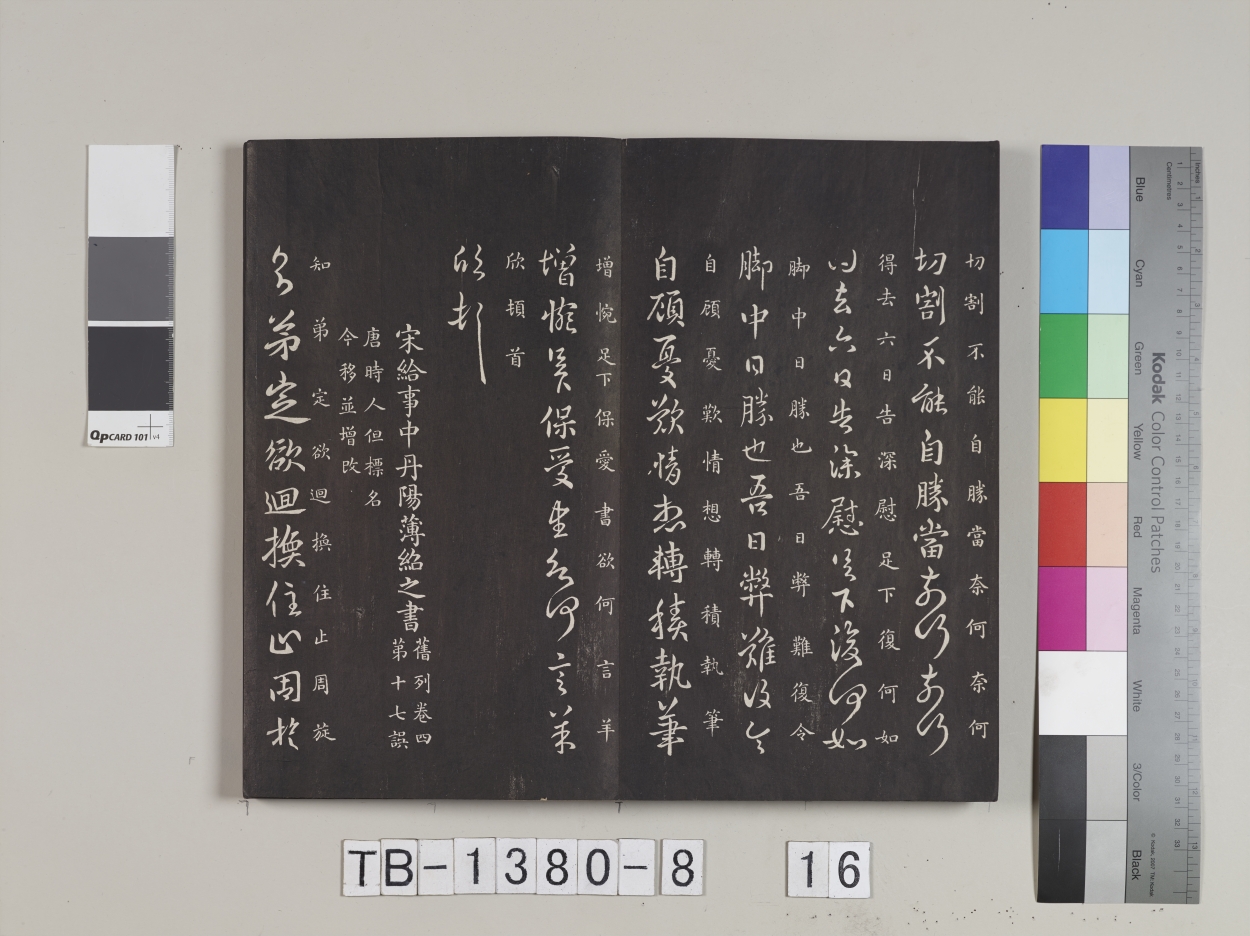 切割不能自勝當奈何奈何
切割不能自勝當奈何奈何
得去六日告深慰足下復何如
得去六日告深慰足下復何如
脚中日勝也吾日弊難復令
脚中日勝也吾日弊難復令
自顧憂歎情想轉積執筆
自顧憂歎情想轉積執筆
增惋足下保愛書欲何言羊
增惋足下保愛書欲何言羊
欣頓首
欣頓首
宋給事中丹陽薄紹之書
舊列卷四
第十七誤
唐時人但標名
今移並增改
知弟定欲迴換住止周旋
知弟定欲迴換住止周旋
QPCARD 101 v4
Kodak Color Control Patches
Blue
Cyan
Green
Yellow
Red
Magenta
White
3/Color
Black
Inches
Centimetres
TB-1380-8 16